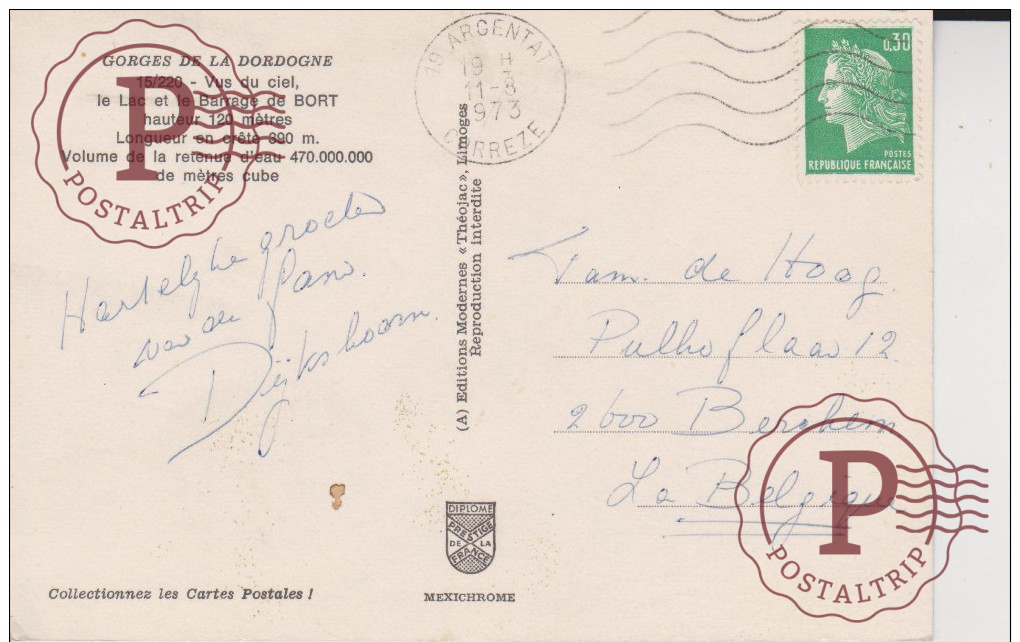 GORGES DE LA DORDOGNE
15/220 - Vus du ciel,
le Lac et le Barrage de BORT
hauteur 120 mètres
Longueur en crête 390 m.
Volume de la retenue d'eau 470.000.000
de mètres cube
P
POSTALTRIP
Hartelijke groeten
van de fam.
Dijksboorn.
(A) Editions Modernes «Théojac», Limoges
Reproduction interdite
19 ARGENTAT
19 H
11-8
1973
CORREZE
0,30
POSTES
REPUBLIQUE FRANÇAISE
Fam. de Hoog
Pulhoflaan 12
2600 Berchem
La Belgique
DIPLOME
PRESTIGE
DE LA
FRANCE
Collectionnez les Cartes Postales !
MEXICHROME
P
POSTALTRIP